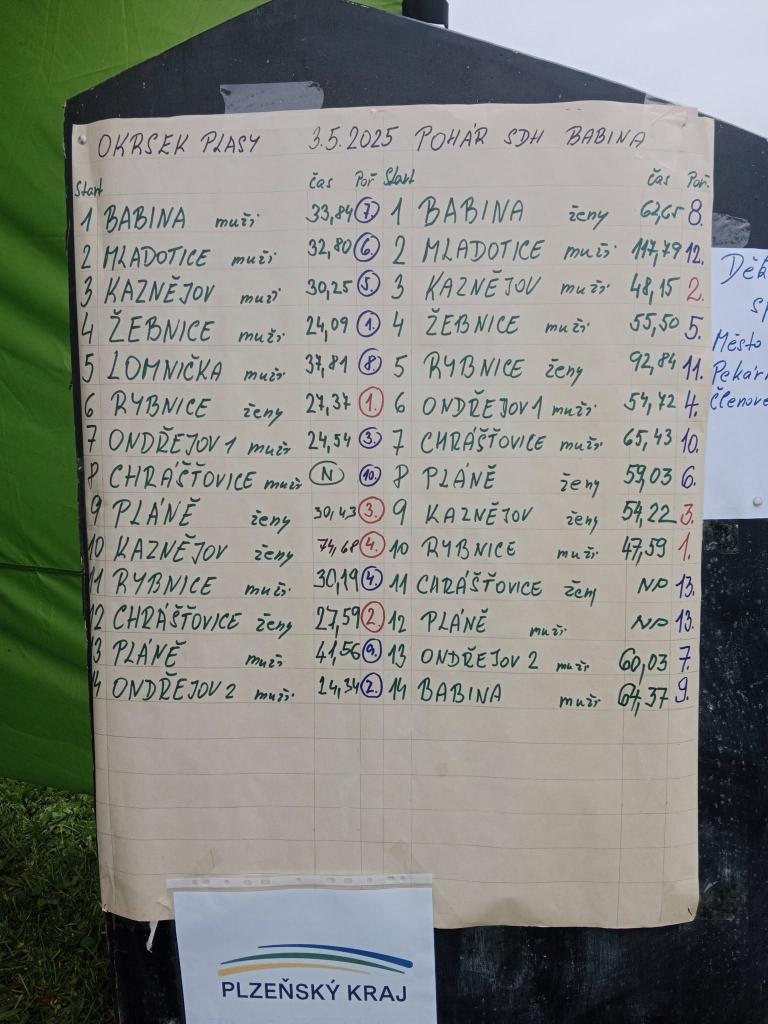 OKRSEK PLASY 3.5.2025 POHÁR SDH BABINA
Start čas Poř Start čas Poř.
1 BABINA muži 33,84 7. 1 BABINA ženy 62,65 8.
2 MLADOTICE muži 32,80 6. 2 MLADOTICE muži 117,79 12.
3 KAZNĚJOV muži 30,25 5. 3 KAZNĚJOV muži 48,15 2.
4 ŽEBNICE muži 24,09 1. 4 ŽEBNICE muži 55,50 5.
5 LOMNIČKA muži 37,81 8. 5 RYBNICE ženy 92,84 11.
6 RYBNICE ženy 27,37 1. 6 ONDŘEJOV 1 muži 54,72 4.
7 ONDŘEJOV 1 muži 24,54 3. 7 CHRÁŠŤOVICE muži 65,43 10.
8 CHRÁŠŤOVICE muži N 10. 8 PLÁNĚ ženy 59,03 6.
9 PLÁNĚ ženy 30,43 3. 9 KAZNĚJOV ženy 54,22 3.
10 KAZNĚJOV ženy 74,68 4. 10 RYBNICE muži 47,59 1.
11 RYBNICE muži 30,19 4. 11 CHRÁŠŤOVICE ženy NP 13.
12 CHRÁŠŤOVICE ženy 27,59 2. 12 PLÁNĚ muži NP 13.
13 PLÁNĚ muži 41,56 9. 13 ONDŘEJOV 2 muži 60,03 7.
14 ONDŘEJOV 2 muži 24,34 2. 14 BABINA muži 64,37 9.
Děk
sp
Město
Pekár
Členové
PLZEŇSKÝ KRAJ